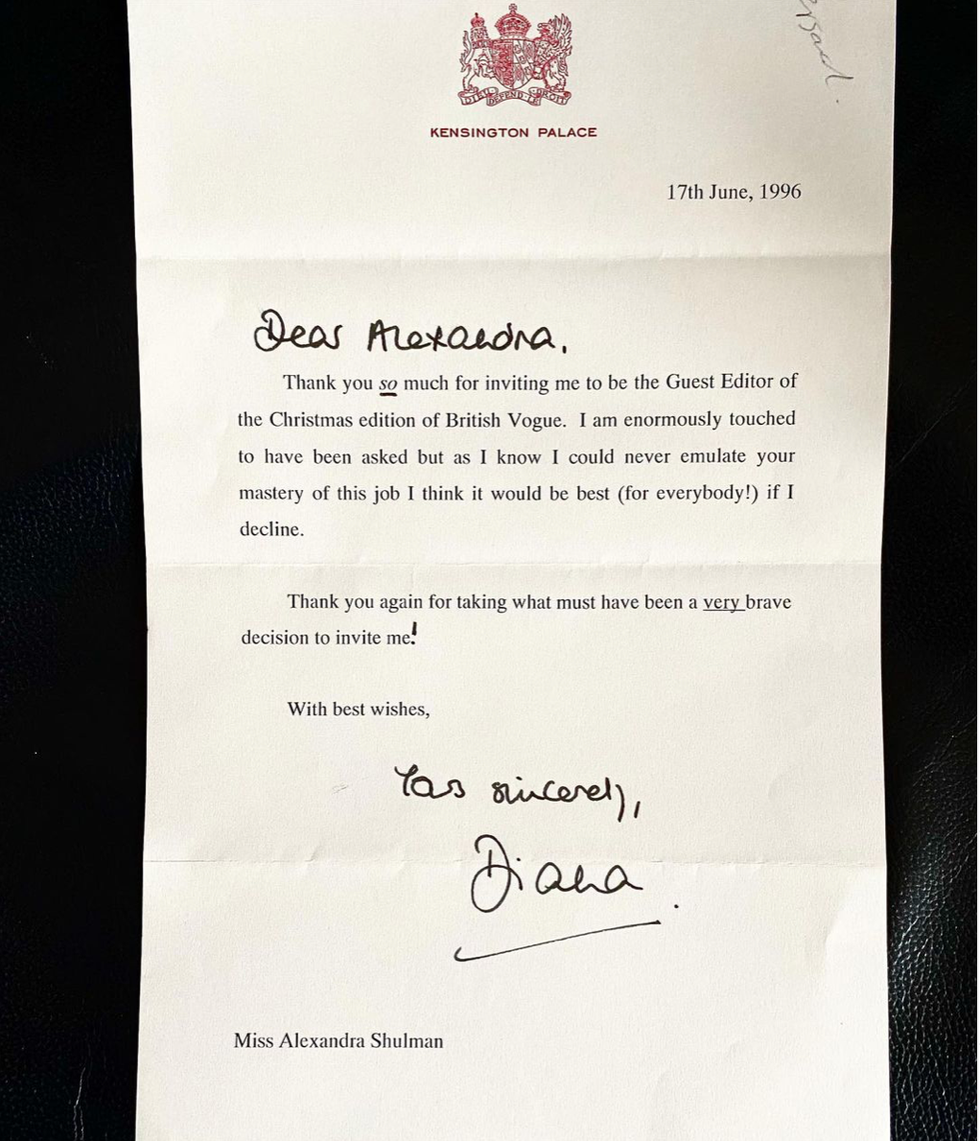 DIEU DEFEND LE DROIT
KENSINGTON PALACE
17th June, 1996
Dear Alexandra,
Thank you so much for inviting me to be the Guest Editor of
the Christmas edition of British Vogue. I am enormously touched
to have been asked but as I know I could never emulate your
mastery of this job I think it would be best (for everybody!) if I
decline.
Thank you again for taking what must have been a very brave
decision to invite me!
With best wishes,
Yours sincerely,
Diana.
Miss Alexandra Shulman